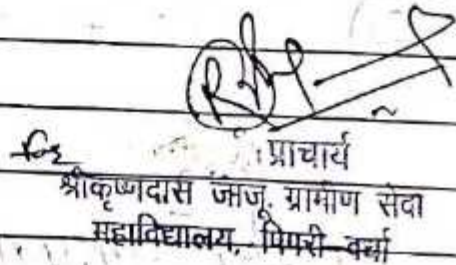 प्राचार्य
श्रीकृष्णदास जाजू ग्रामीण सेवा
महाविद्यालय, पिपरी-वर्धा